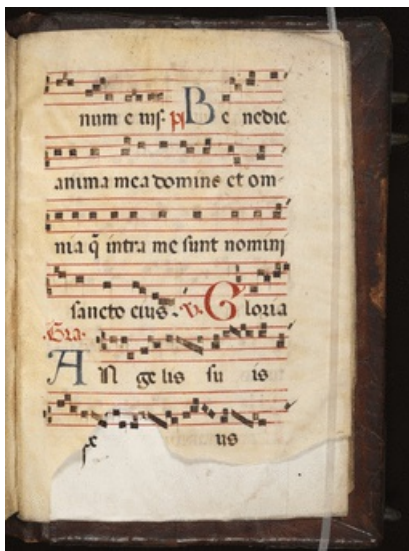 num e ius. ps Be nedic
anima mea domino et om-
nia q̃ intra me sunt nomini
sancto eius. v. Gloria
Gra.
AN ge lis su is
us